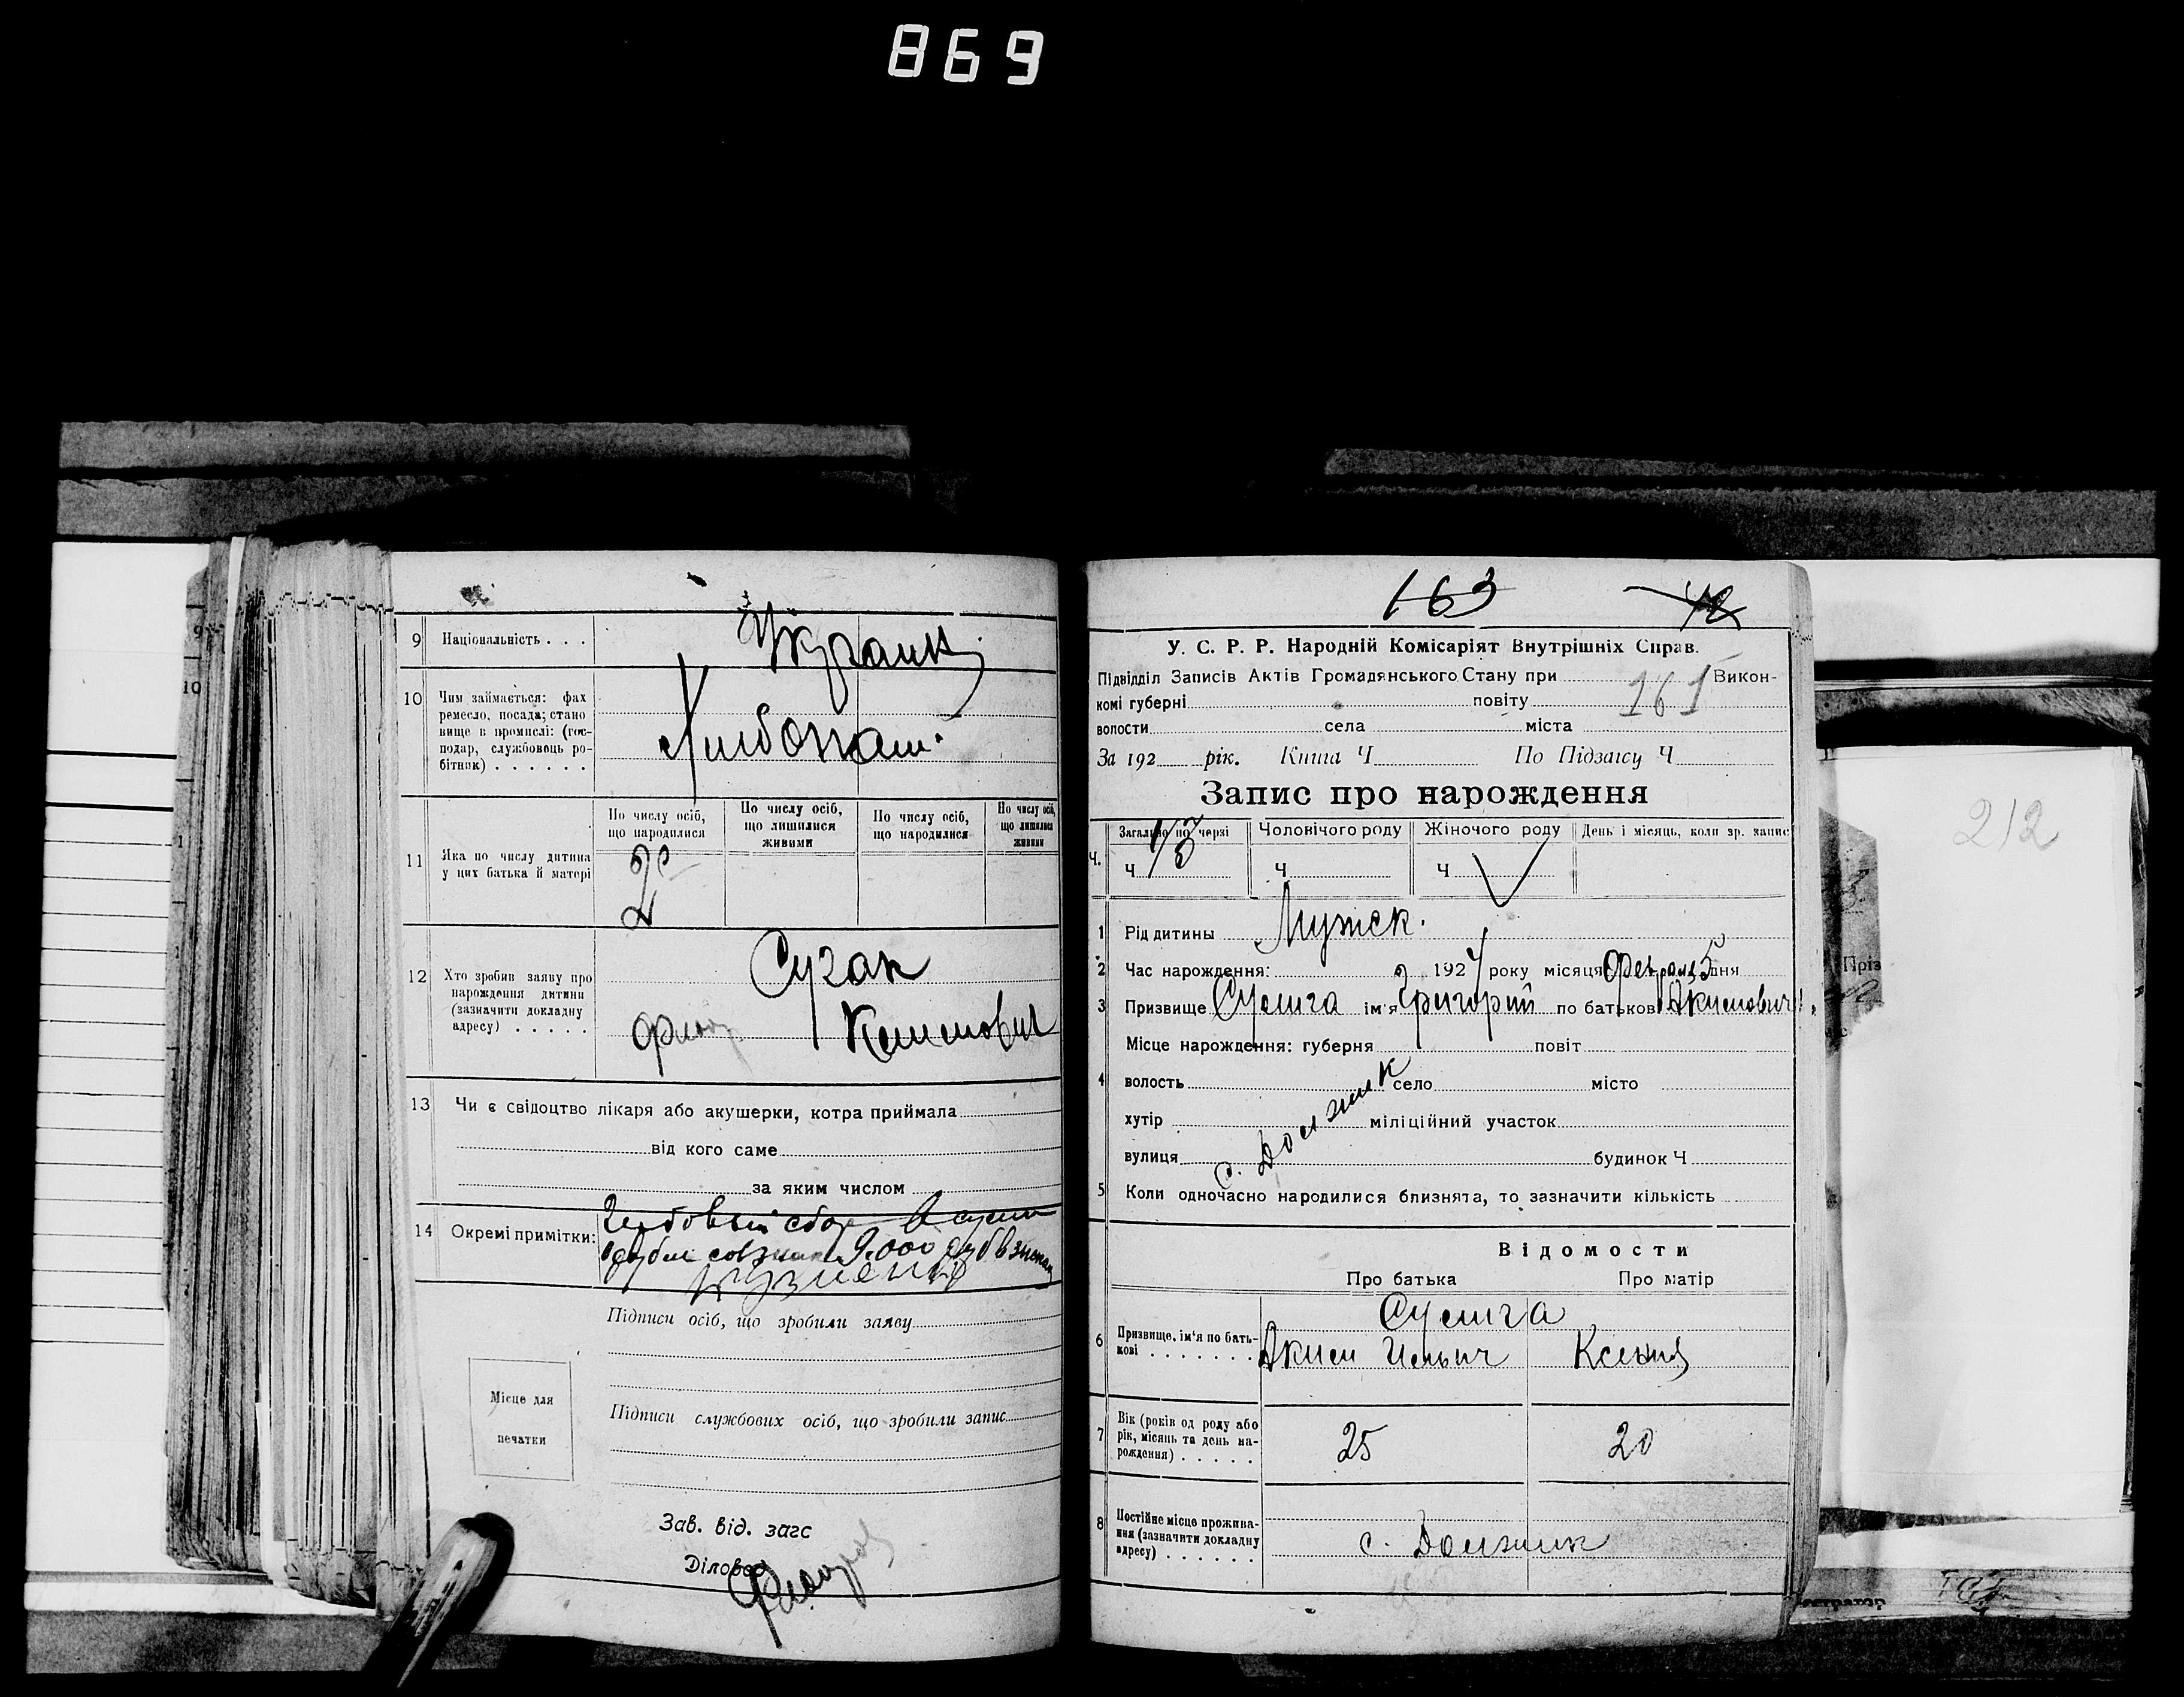 869
9 Національність . . .
Украинц
10 Чим займається: фах
ремесло, посада; стано
вище в промислі: (гос-
подар, службовець ро-
бітник) . . . . . .
Хлибопаш.
11 Яка по числу дитина
у цих батька й матері
По числу осіб,
що народилися
По числу осіб,
що лишилися
живими
По числу осіб,
що народилися
По числу осіб,
що лишилися
живими
2
12 Хто зробив заяву про
нарождення дитини
(зазначити докладну
адресу) . . . . .
13 Чи є свідоцтво лікаря або акушерки, котра приймала
від кого саме
за яким числом
14 Окремі примітки:
Гербовый сбор
9.000
Підписи осіб, що зробили заяву
Місце для
печатки
Підписи службових осіб, що зробили запис
Зав. від. загс
Діловод
163
У. С. Р. Р. Народній Комісаріят Внутрішніх Справ.
Підвідділ Записів Актів Громадянського Стану при Викон-
161
комі губерні повіту
волости села міста
За 192 рік. Книга Ч По Підзагсу Ч
Запис про нарождення
Ч. Загально по черзі Чоловічого роду Жіночого роду День і місяць, коли зр. запис
Ч Ч Ч
1 Рід дитины Мужск.
2 Час нарождення: 1924 року місяця Февраля 5 дня
3 Призвище Сулига ім'я Григорий по батькові Акимович
4 Місце нарождення: губерня повіт
волость село місто
хутір міліційний участок
вулиця будинок Ч
с. Должик
5 Коли одночасно народилися близнята, то зазначити кількість
Відомости
Про батька Про матір
6 Призвище, ім'я по бать-
кові . . . . . . .
Сулига
Аким Ильич Ксения
7 Вік (років од роду або
рік, місяць та день на-
рождення) . . . . .
25 20
8 Постійне місце прожива-
ння (зазначити докладну
адресу) . . . . . .
с. Должик
212